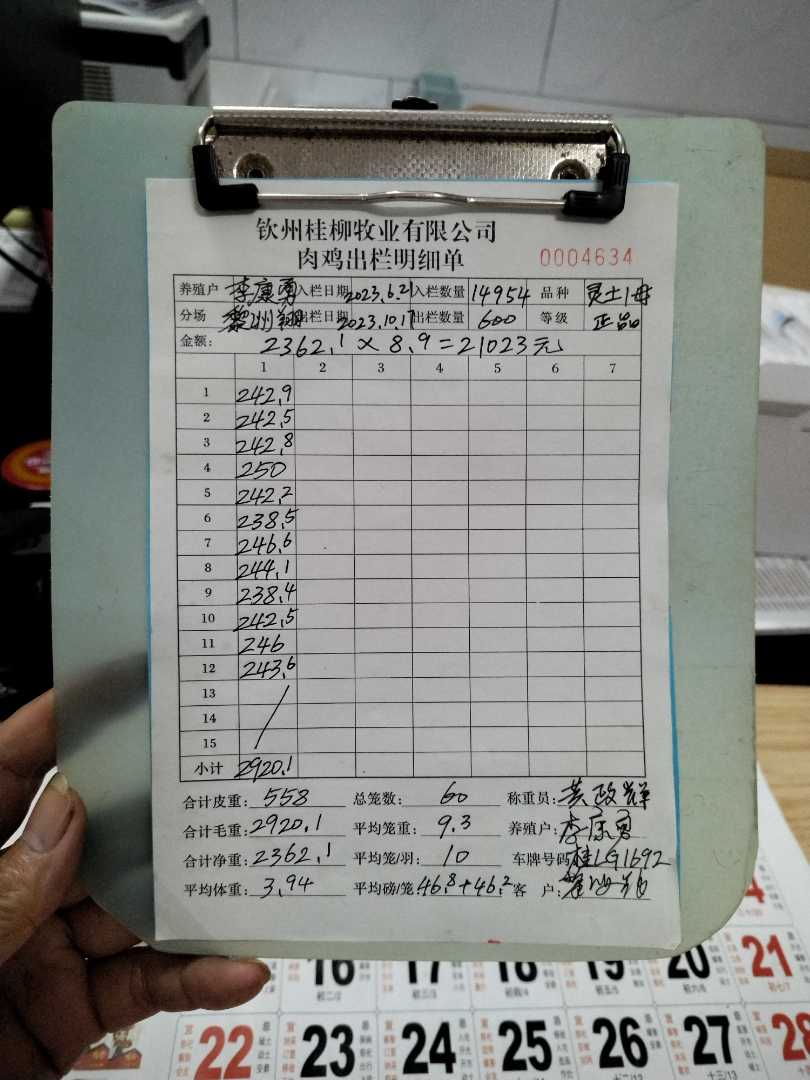 钦州桂柳牧业有限公司
肉鸡出栏明细单 0004634
养殖户 李康勇 入栏日期 2023.6.21 入栏数量 14954 品种 灵土1母
分场 黎洲翔 出栏日期 2023.10.17 出栏数量 600 等级 正品
金额: 2362.1 × 8.9 = 21023元
1 2 3 4 5 6 7
1 242.9
2 242.5
3 242.8
4 250
5 242.2
6 238.5
7 246.6
8 244.1
9 238.4
10 242.5
11 246
12 243.6
13
14
15
小计 2920.1
合计皮重: 558 总笼数: 60 称重员: 黄政辉
合计毛重: 2920.1 平均笼重: 9.3 养殖户: 李康勇
合计净重: 2362.1 平均笼/羽: 10 车牌号码 桂LG1692
平均体重: 3.94 平均磅/笼 46.8+46.2 客 户:
16 17 18 19 20 21
初二/2 初三/3 初四/4 初五/5 初六/6 初七/7
22 23 24 25 26 27 28